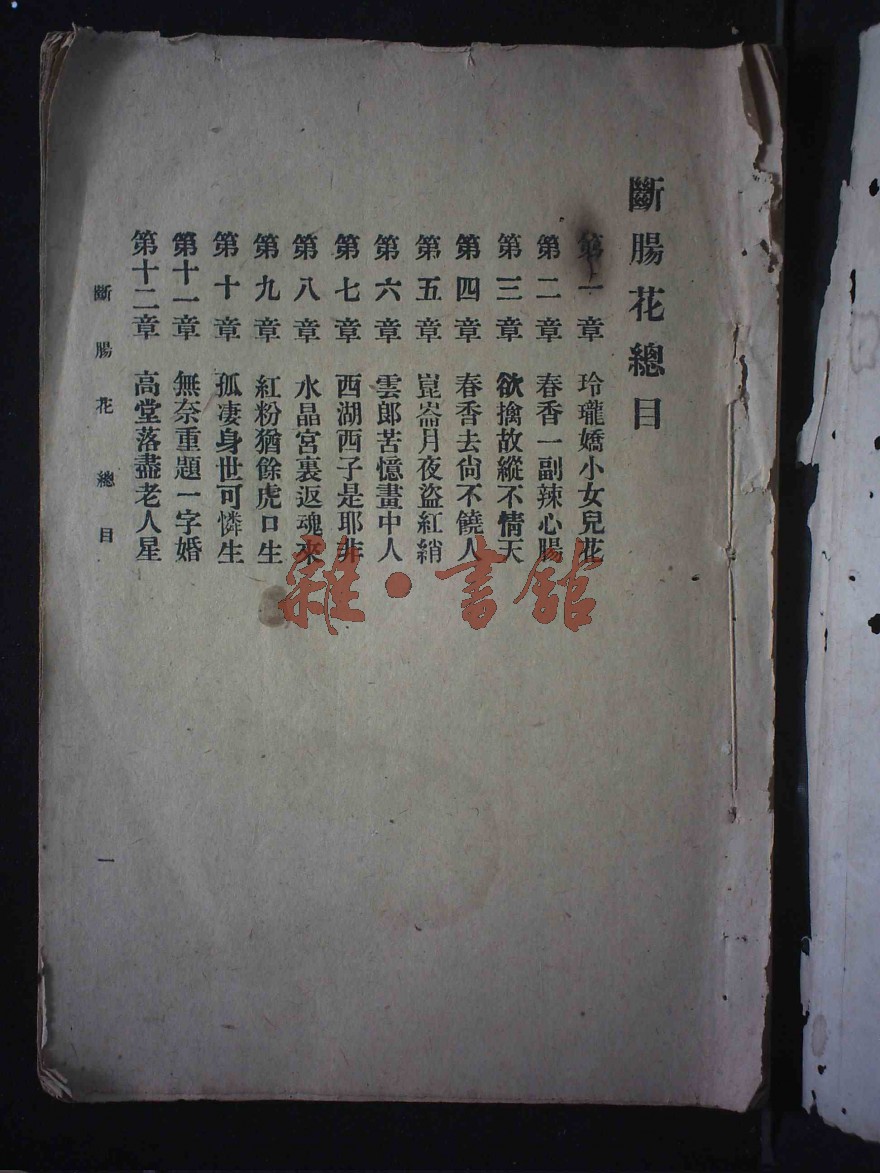 斷腸花總目
第一章 玲瓏嬌小女兒花
第二章 春香一副辣心腸
第三章 欲擒故縱不情天
第四章 春香去尙不饒人
第五章 崑崙月夜盜紅綃
第六章 雲郎苦憶畫中人
第七章 西湖西子是耶非
第八章 水晶宮裏返魂來
第九章 紅粉猶餘虎口生
第十章 孤凄身世可憐生
第十一章 無奈重題一字婚
第十二章 高堂落盡老人星
斷腸花總目 一
雜·書館